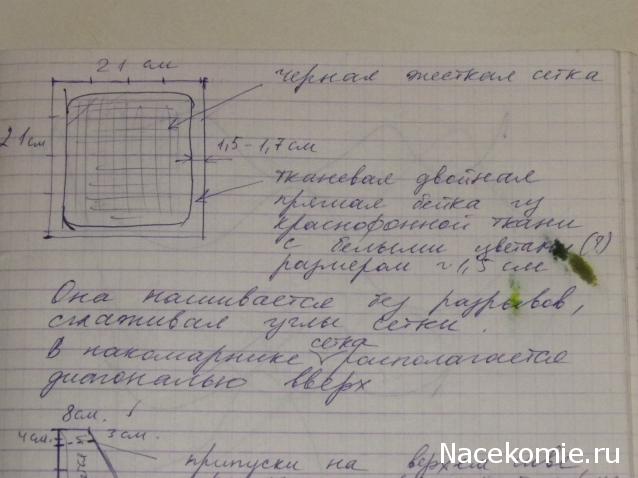 21 см
черная жесткая сетка
21 см
1,5-1,7 см
тканевая двойная
прямая бейка из
краснофонной ткани
с белыми цветами (?)
размером ~1,5 см
Она нашивается без разрывов,
сглаживая углы сетки.
сетка
В накомарнике располагается
диагональю вверх
8 см.
4 см.
3 см.
припуски на верхнем
Nacekomie.ru